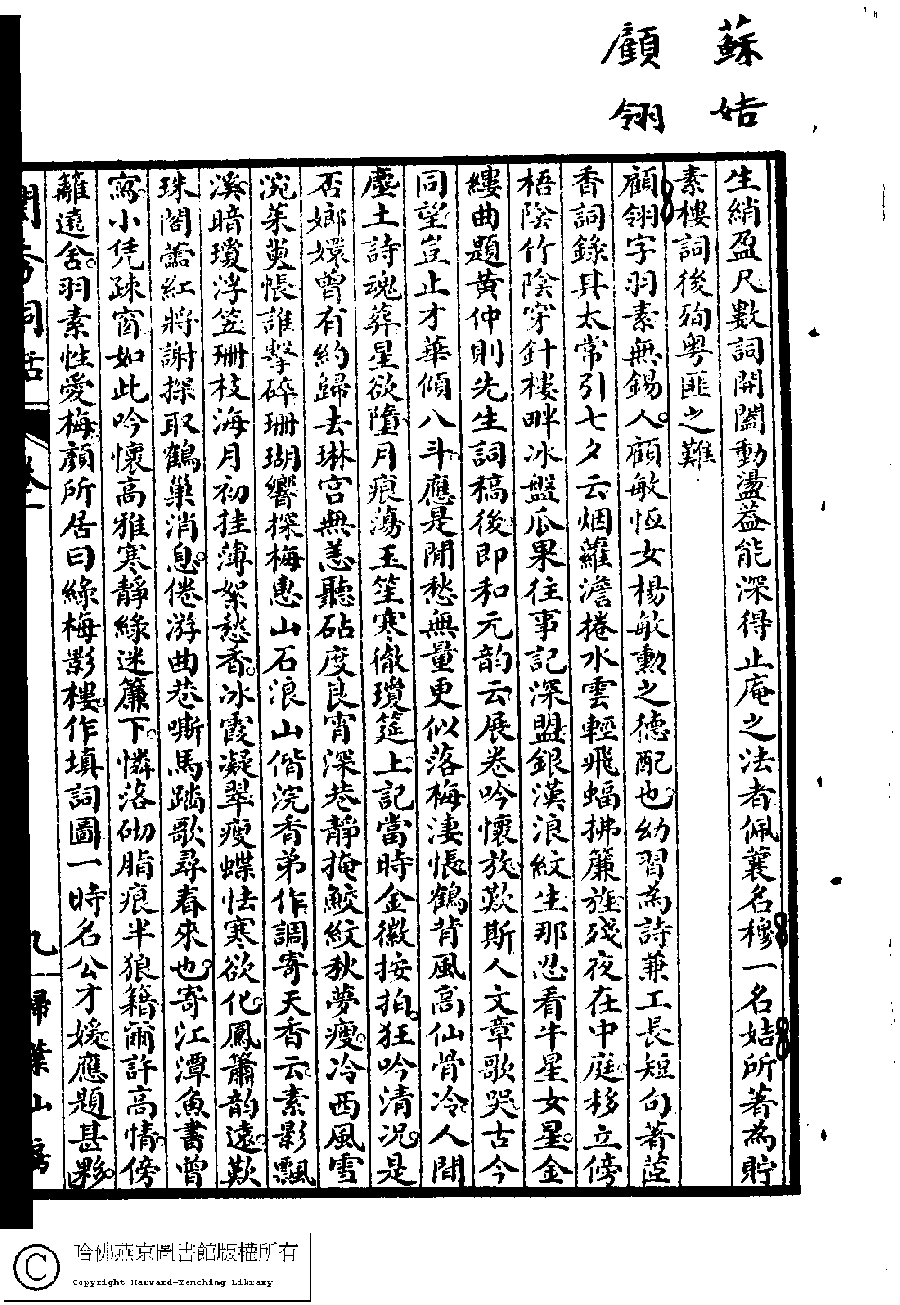 蘇姞
顧翎
生綃盈尺數詞開闔動盪益能深得止庵之法者佩蘘名穆一名姞所著為貯
素樓詞後殉粵匪之難
顧翎字羽素無錫人顧敏恆女楊敏勳之德配也幼習為詩兼工長短句著茝
香詞錄其太常引七夕云烟蘿澹捲水雲輕飛蝠拂簾旌殘夜在中庭移立傍
梧陰竹陰穿針樓畔冰盤瓜果往事記深盟銀漢浪紋生那忍看牛星女星金
縷曲題黃仲則先生詞稿後即和元韵云展卷吟懷放歎斯人文章歌哭古今
同望豈止才華傾八斗應是閒愁無量更似落梅淒悵鶴背風高仙骨冷人間
塵土詩魂葬星欲墮月痕蕩玉笙寒徹瓊筵上記當時金徽按拍狂吟清况是
否嫏嬛曾有約歸去琳宮無恙聽砧度良宵深巷靜掩鮫紋秋夢瘦冷西風雪
涴茱萸悵誰擊碎珊瑚響探梅惠山石浪山偕浣香弟作調寄天香云素影飄
溪暗瓊浮笠珊枝海月初挂薄絮愁香冰霞凝翠瘦蝶怯寒欲化鳳簫韵遠歎
珠閣蕾紅將謝探取鶴巢消息倦游曲巷嘶馬踏歌尋春來也寄江潭魚書曾
寫小凭疎窗如此吟懷高雅寒靜綠迷簾下憐洛砌脂痕半狼籍爾許高情傍
籬遠舍羽素性愛梅顏所居曰綠梅影樓作填詞圖一時名公才媛應題甚夥
閨秀詞話
卷一
九
掃葉山房
哈佛燕京圖書館版權所有
Copyright Harvard-Yenching Library